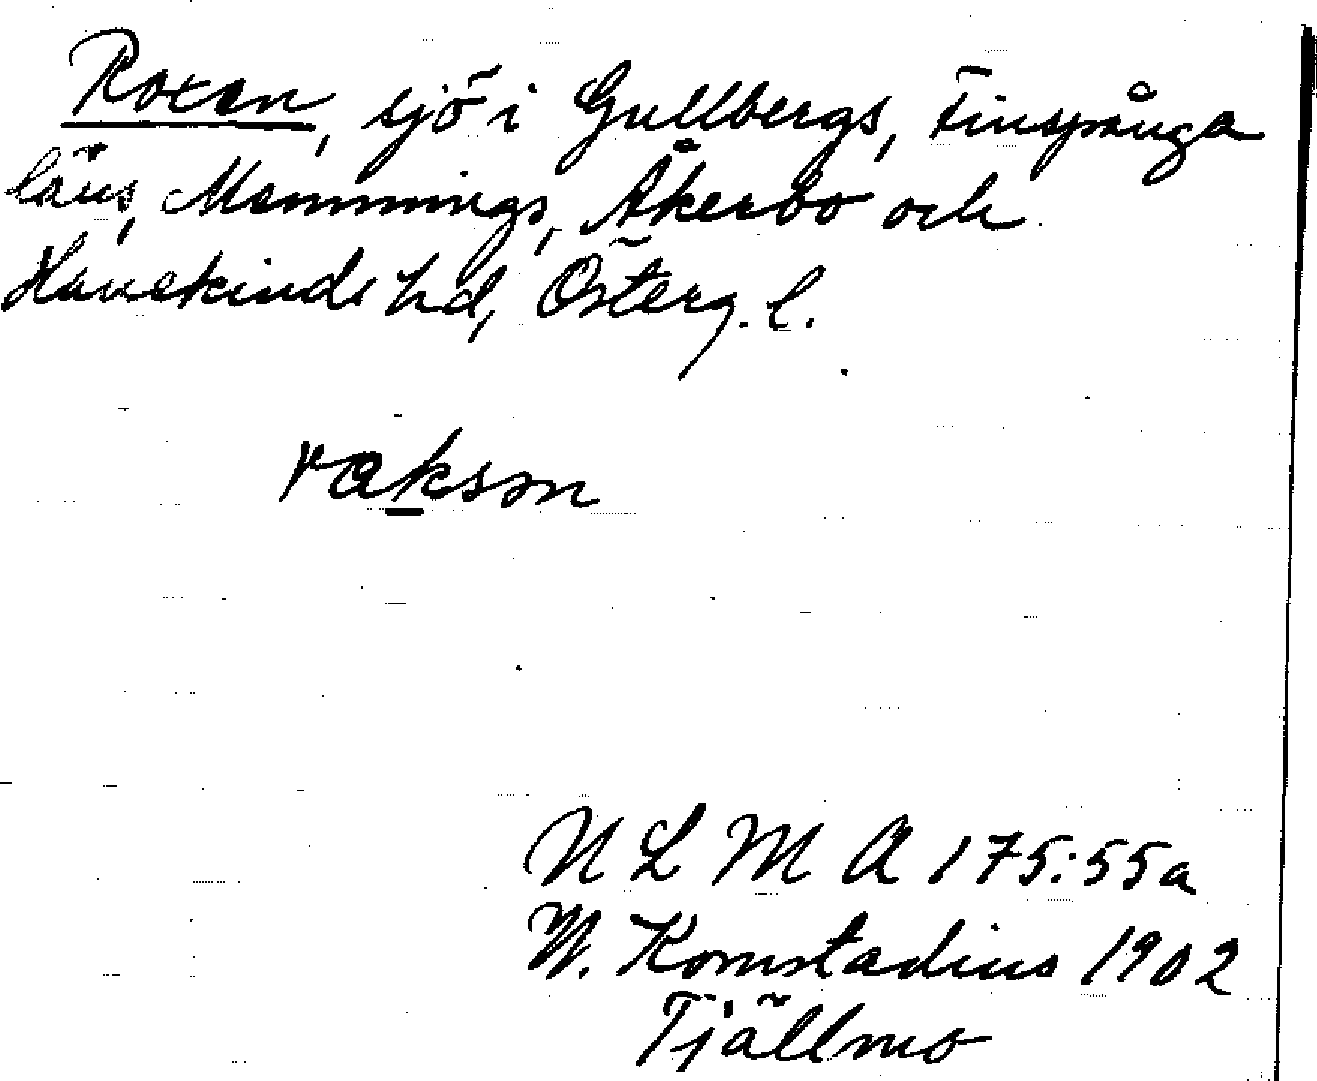 Roxen, sjö i Gullbergs, Finspånga
läns, Memmings, Åkerbo och
Hanekinds hd, Österg. l.
rɑksən
N L M A 175:55a
W. Komstadius 1902
Tjällmo